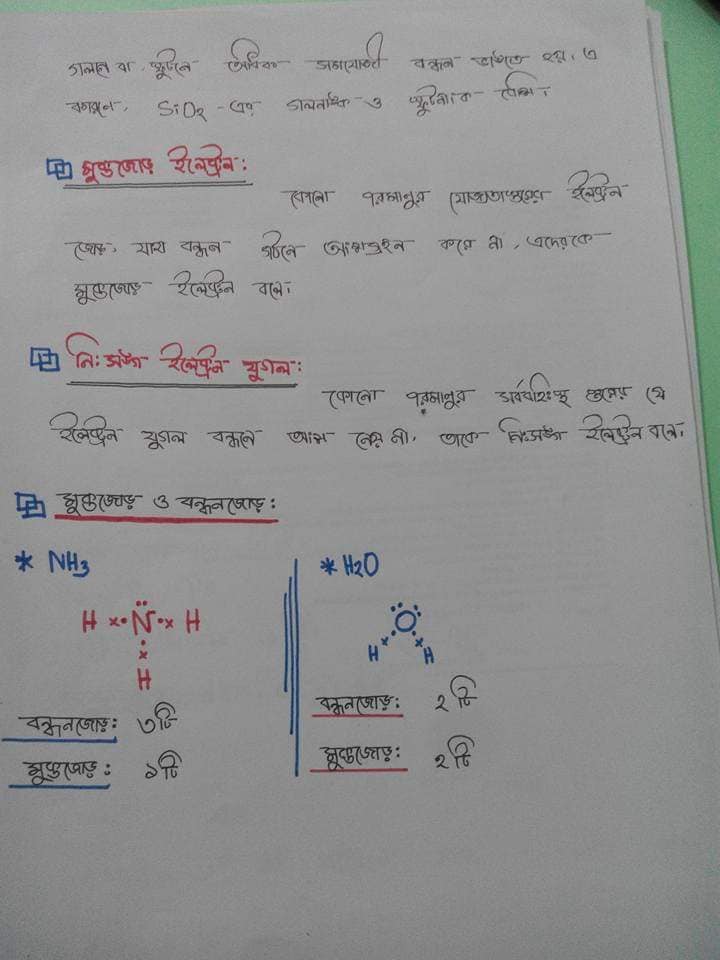 গলনে বা স্ফুটনে অধিক সমযোজী বন্ধন ভাঙতে হয়। এ
কারনে, SiO2 -এর গলনাঙ্ক ও স্ফুটনাংক বেশি।
মুক্তজোড় ইলেক্ট্রন:
কোনো পরমাণুর যোজ্যতাস্তরের ইলেক্ট্রন
জোড়, যারা বন্ধন গঠনে অংশগ্রহন করে না, এদেরকে
মুক্তজোড় ইলেক্ট্রন বলে।
নিঃসঙ্গ ইলেক্ট্রন যুগল:
কোনো পরমাণুর সর্ববহিঃস্থ স্তরের যে
ইলেক্ট্রন যুগল বন্ধনে অংশ নেয় না, তাকে নিঃসঙ্গ ইলেক্ট্রন বলে।
মুক্তজোড় ও বন্ধনজোড়:
* NH3
* H2O
H ו N •× H
×
H
O
H × × H
বন্ধনজোড়: ৩টি
মুক্তজোড়: ১টি
বন্ধনজোড়: ২টি
মুক্তজোড়: ২টি